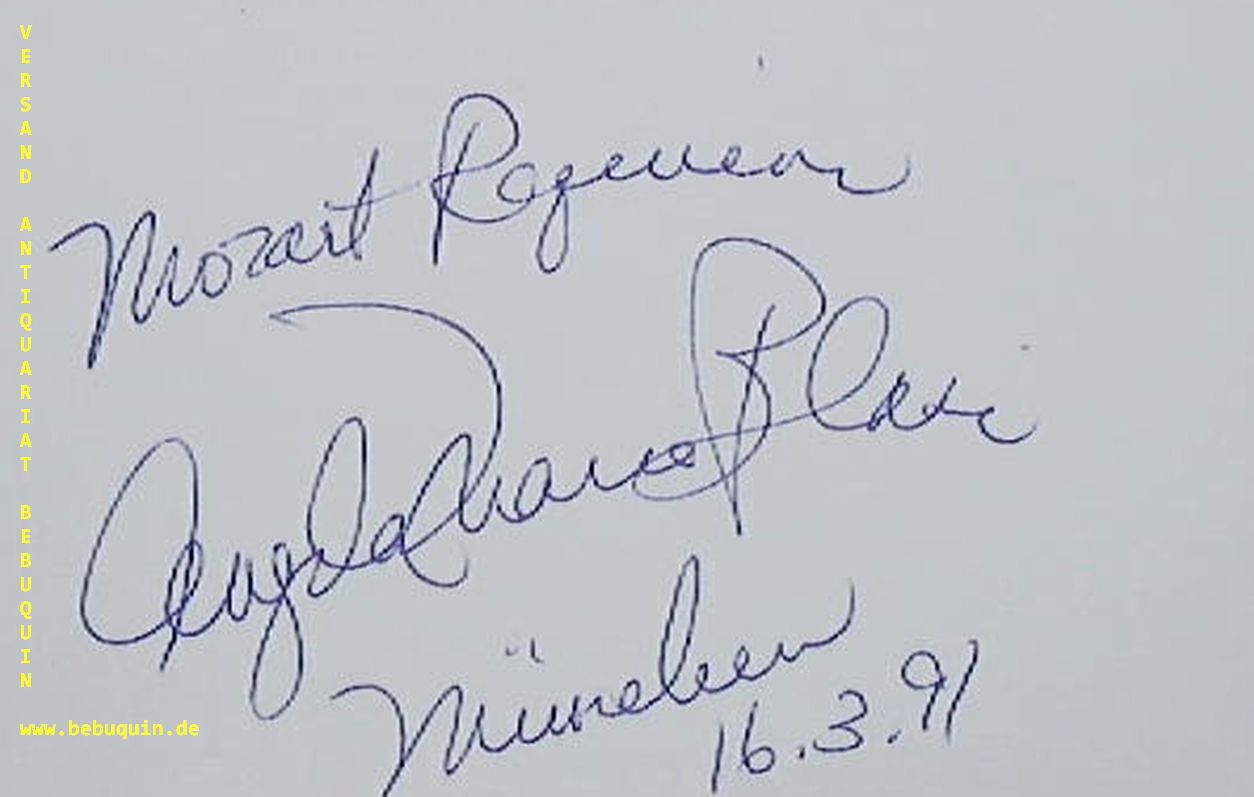 VERSAND ANTIQUARIAT BEBUQUIN
www.bebuquin.de
Mozart Requiem
Angela Maria Blasi
München
16.3.91